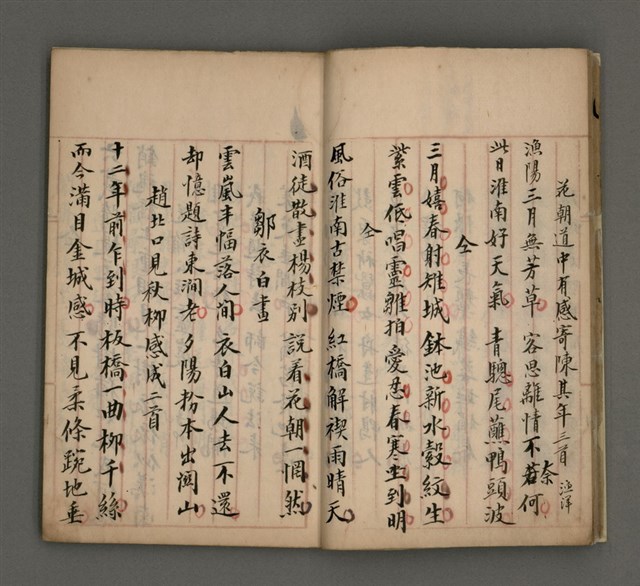 花朝道中有感寄陳其年三首 漁洋
漁陽三月無芳草 客思離情不奈何
此日淮南好天氣 青驄尾蘸鴨頭波
仝
三月嬉春射雉城 鉢池新水縠紋生
紫雲低唱靈雛拍 愛忍春寒坐到明
仝
風俗淮南古禁煙 紅橋解禊雨晴天
酒徒散盡楊枝別 說着花朝一惘然
鄒衣白畫
雲嵐半幅落人間 衣白山人去不還
却憶題詩東澗老 夕陽粉本出關山
趙北口見秋柳感成二首
十二年前乍到時 板橋一曲柳千絲
而今滿目金城感 不見柔條踠地垂